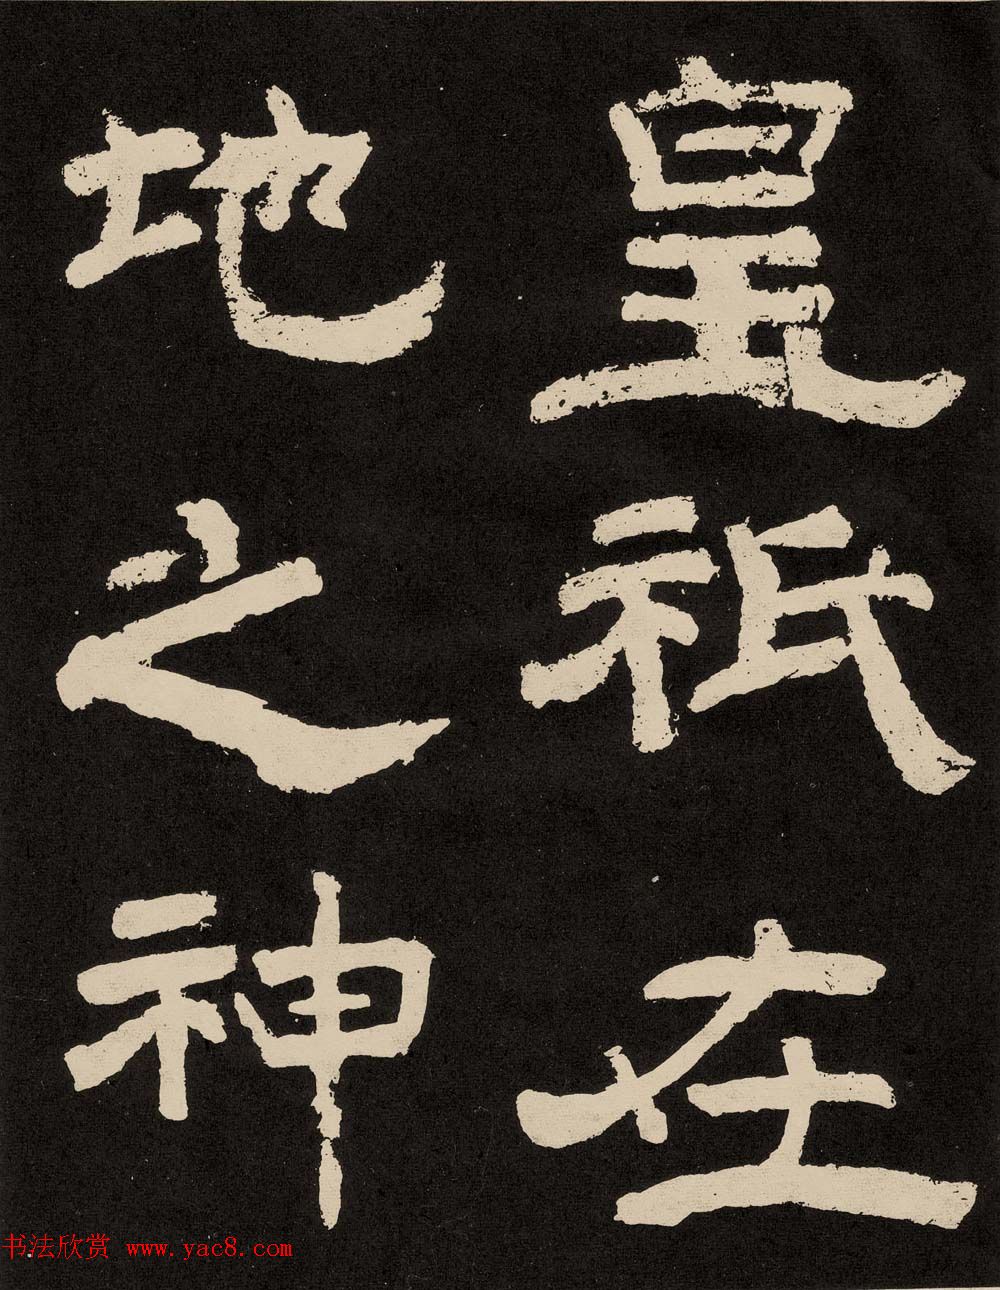 皇祇在
地之神
书法欣赏 www.yac8.com